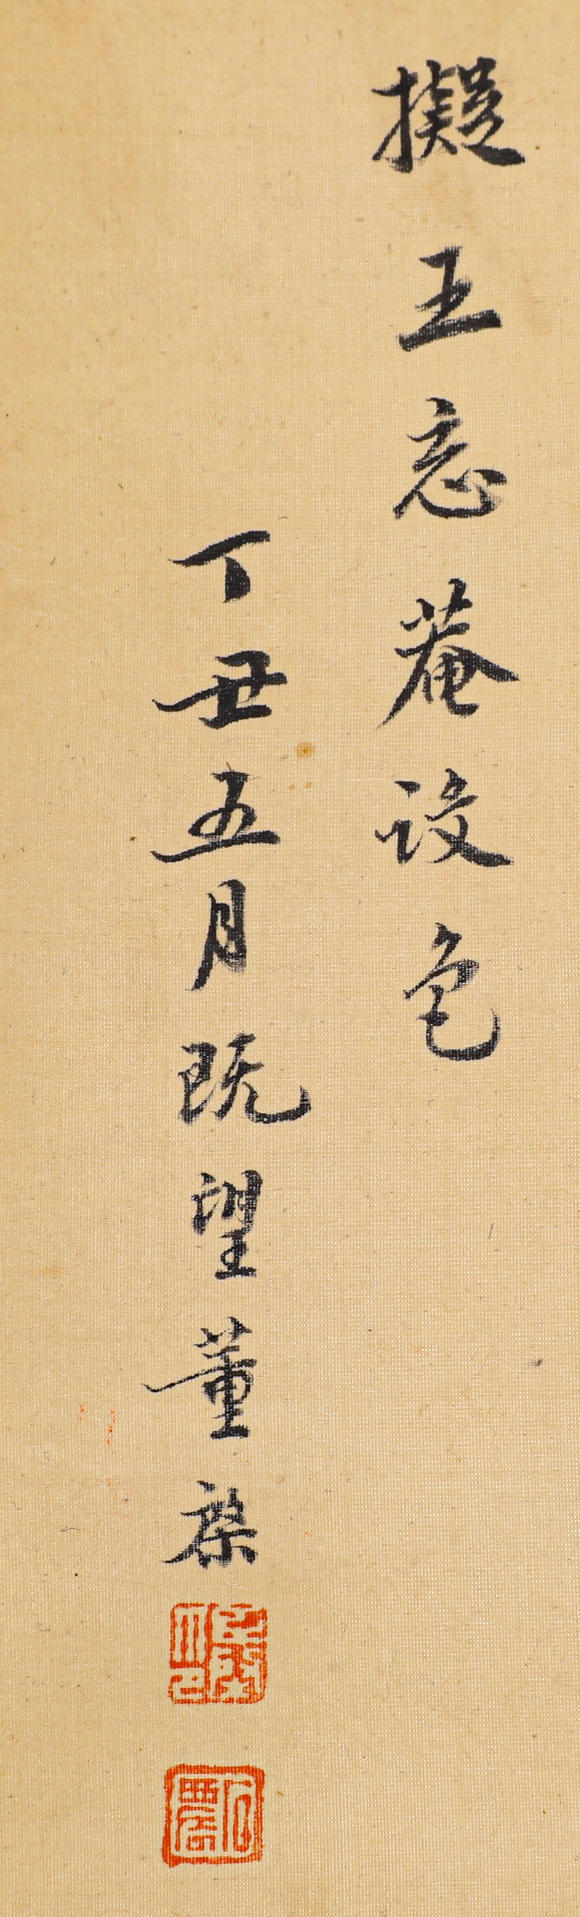 擬王忘菴設色
丁丑五月既望董棨
石農